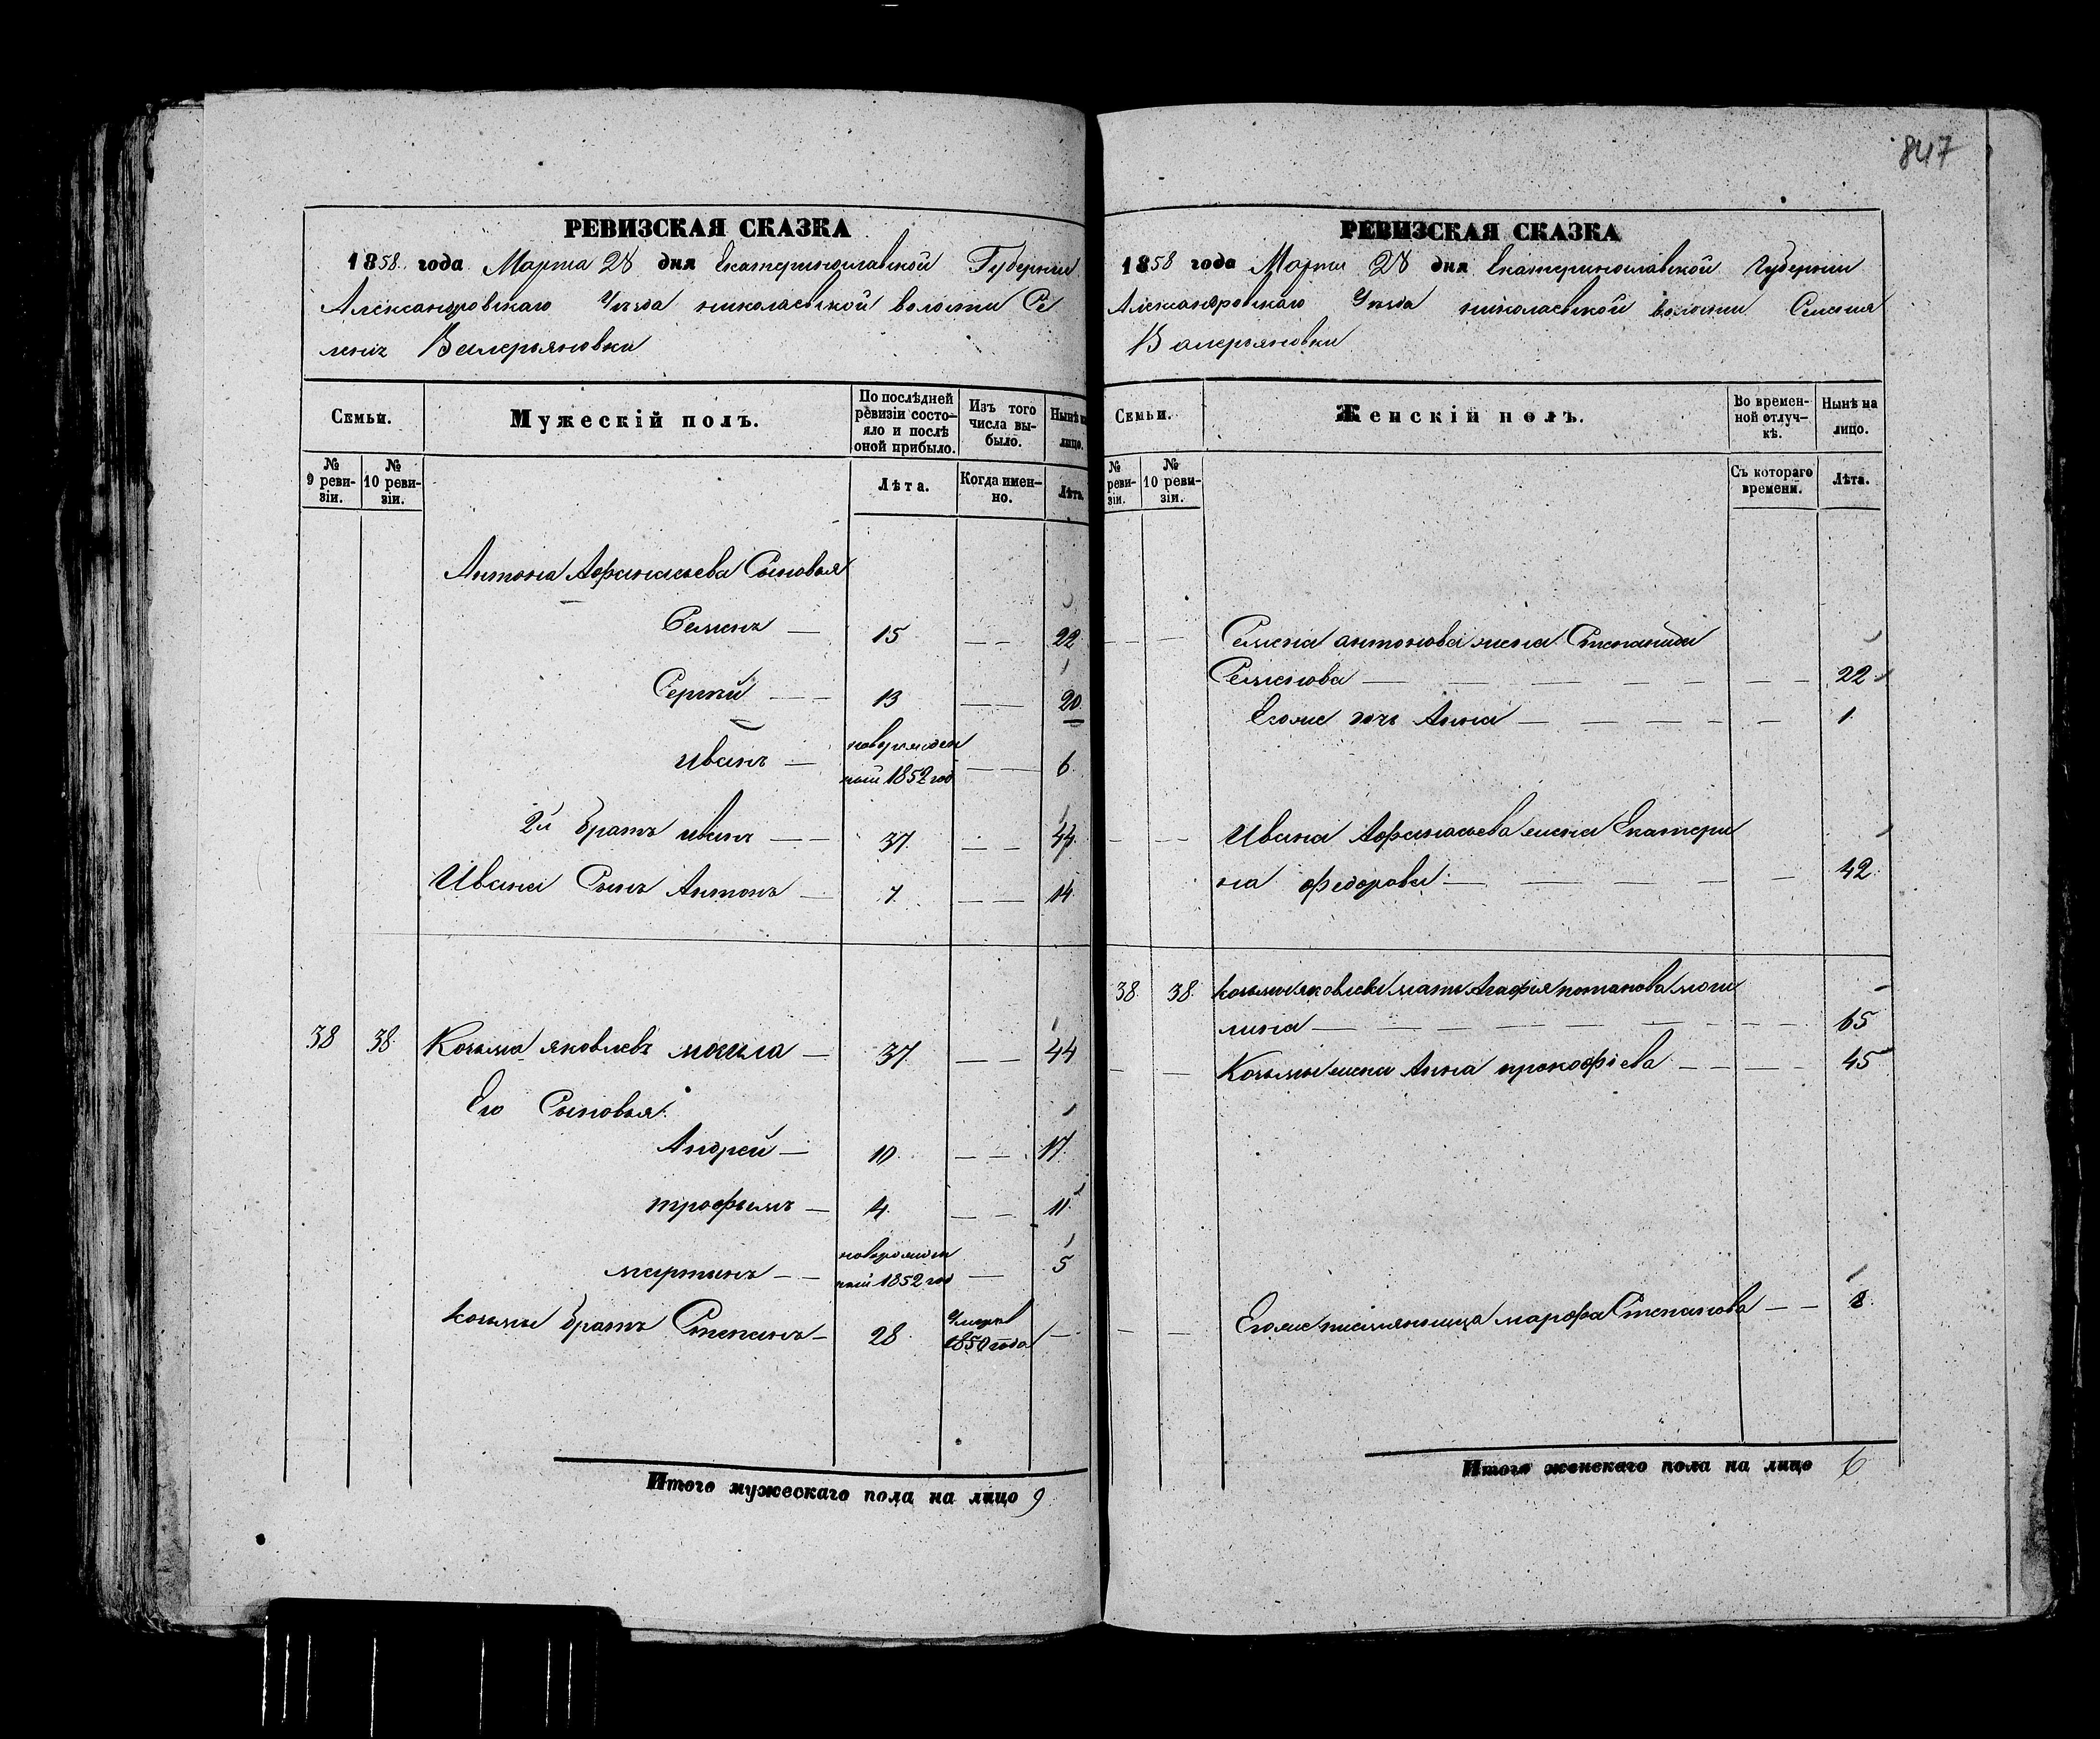 847
РЕВИЗСКАЯ СКАЗКА
1858 года Марта 28 дня Екатеринославской Губернии
Александровскаго Уезда николаевской волости Се
ления Валерьяновки
Семьи.
Мужескій полъ.
По послѣдней ревизіи состо-яло и послѣ оной прибыло.
Изъ того числа вы-было.
Нынѣ на лицо.
№ 9 реви-зіи.
№ 10 реви-зіи.
Лѣта.
Когда имен-но.
Лѣта.
Антона Афанасьева Сыновья
Семенъ — 15 — — 22
Сергѣй — — 13 — — 20
иванъ — новорожден
ный 1852 год — — 6
2й братъ иванъ — — 37 — — 44
Ивана Сынъ Антонъ — 7 — — 14
38 38 Козьма яковлевъ могила — 37 — — 44
Его Сыновья
Андрей — 10 — — 17
трофымъ — 4 — — 11
мартинъ — — новорожден
ный 1852 год — 5
козьмы братъ Степанъ — 28 Умеръ
1850 года —
Итого мужескаго пола на лицо 9
РЕВИЗСКАЯ СКАЗКА
1858 года Марта 28 дня Екатеринославской Губернии
Александровскаго Уезда николаевской волости Селения
Валерьяновки
Семьи.
Женскій полъ.
Во времен-ной отлуч-кѣ.
Нынѣ на лицо.
№ реви-зіи.
№ 10 реви-зіи.
Съ котораго времени.
Лѣта.
Семена антонова жена Степанида
Семенова — — — — — — 22
Егоже дочь Анна — — — — — 1
Ивана Афанасьева жена Екатери
на федорова — — — — — 42
38 38 козьмы яковлева мать Агафия потапова моги
лина — — — — — — 65
Козьмы жена Анна прокофіева — — — — 45
Егоже племянница марфа Степанова — — 8
Итого женскаго пола на лицо 6